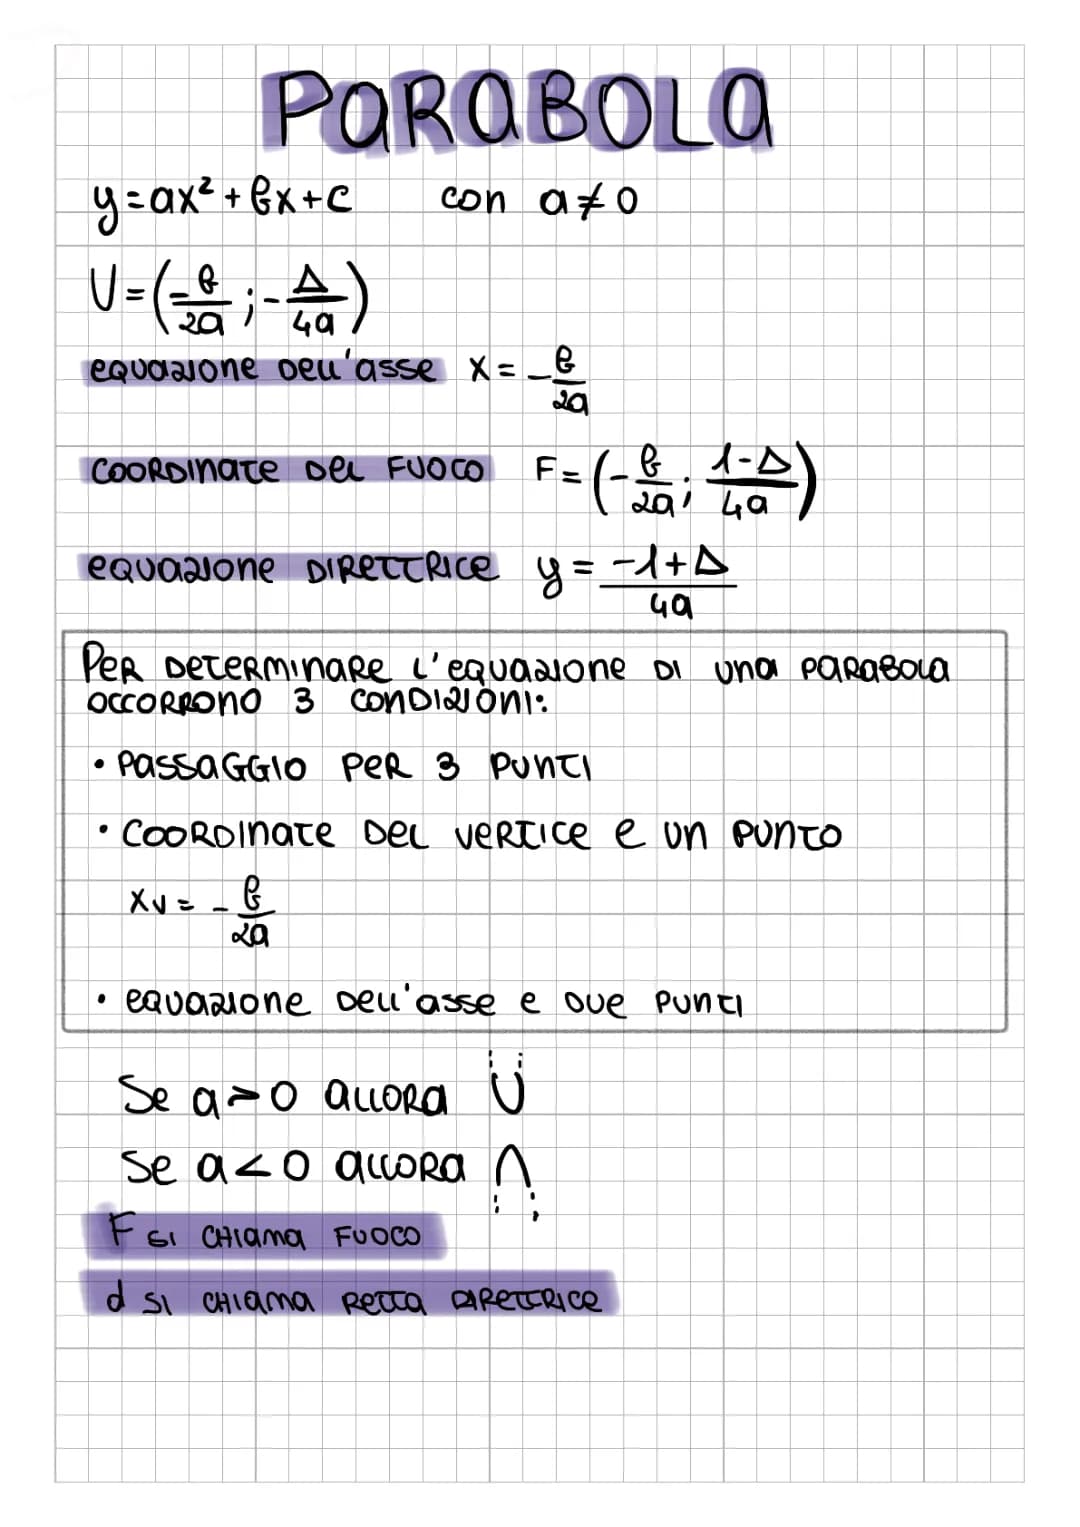 PARABOLA
y=ax²+bx+c con a≠0
V=(-b/2a ; -Δ/4a)
equazione dell'asse x=-b/2a
COORDINATE DEL FUOCO F=(-b/2a ; 1-Δ/4a)
equazione DIRETTRICE y=-1+Δ/4a
PER DETERMINARE L'EQUAZIONE DI UNA PARABOLA
OCCORRONO 3 CONDIZIONI:
• PASSAGGIO PER 3 PUNTI
• COORDINATE DEL VERTICE E UN PUNTO
xv=-b/2a
• equazione DELL'asse e DUE PUNTI
Se a>0 ALLORA ∪
Se a<0 ALLORA ∩
F SI CHIAMA FUOCO
d SI CHIAMA RETTA DIRETTRICE